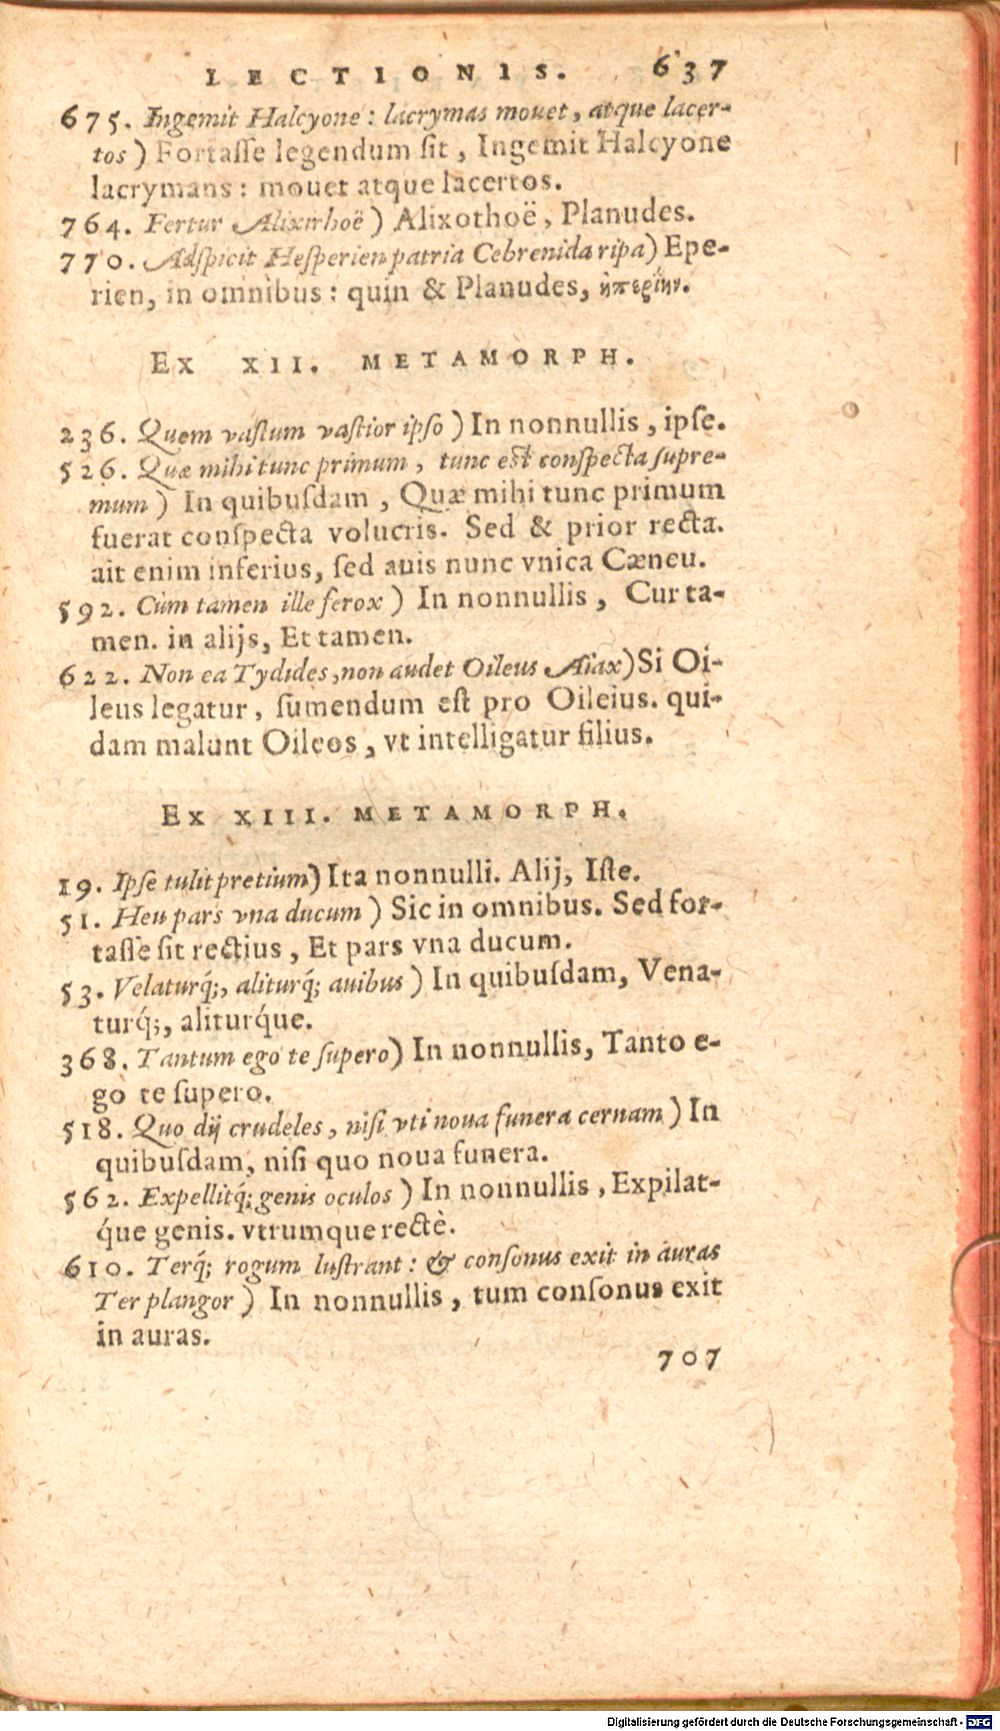 LECTIONIS. 637
675. Ingemit Halcyone : lacrymas mouet, atque lacer-
tos ) Fortasse legendum sit, Ingemit Halcyone
lacrymans : mouet atque lacertos.
764. Fertur Alixirhoë ) Alixothoë, Planudes.
770. Adspicit Hesperien patria Cebrenida ripa ) Epe-
rien, in omnibus : quin & Planudes,
EX XII. METAMORPH.
236. Quem vastum vastior ipso ) In nonnullis, ipse.
526. Quæ mihi tunc primum, tunc est conspecta supre-
mum ) In quibusdam, Quæ mihi tunc primum
fuerat conspecta volucris. Sed & prior recta.
ait enim inferius, sed auis nunc vnica Cæneu.
592. Cùm tamen ille ferox ) In nonnullis, Cur ta-
men. in alijs, Et tamen.
622. Non ea Tydides, non audet Oileus Aiax) Si Oi-
leus legatur, sumendum est pro Oileius. qui-
dam malunt Oileos, vt intelligatur filius.
EX XIII. METAMORPH.
19. Ipse tulit pretium) Ita nonnulli. Alij, Iste.
51. Heu pars vna ducum ) Sic in omnibus. Sed for-
tasse sit rectius, Et pars vna ducum.
53. Velaturq́;, aliturq́; auibus ) In quibusdam, Vena-
turq́;, aliturq́ue.
368. Tantum ego te supero) In nonnullis, Tanto e-
go te supero.
518. Quo dij crudeles, nisi vti noua funera cernam ) In
quibusdam, nisi quo noua funera.
562. Expellitq́; genis oculos ) In nonnullis, Expilat-
q́ue genis. vtrumque rectè.
610. Terq́; rogum lustrant : & consonus exit in auras
Ter plangor ) In nonnullis, tum consonus exit
in auras.
707
Digitalisierung gefördert durch die Deutsche Forschungsgemeinschaft - DFG